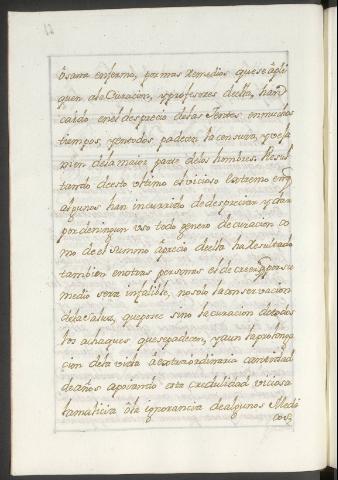 ò sana enfermo, por mas remedios que se apli
quen a la Curacion, y profesores de ella, han
caido en el desprecio de las Jentes en muchos
tiempos, y en todos padecen la censura, y vexa
men de la maior parte de los hombres. Resul
tando de esto vltimo el vicioso extremo en q̃
algunos han incurrido de despreciar, y dar
por de ningun vso todo genero de curacion co
mo de el Summo àprecio de ella ha Resultado
tambien en otras personas el de creer q̃ por su
medio sera infalible, no solo la conservacion
de la Salud, que posee sino la curacion de todos
los achaques que se padecen, y aun la prolonga
cion de la vida à extraordinaria cantidad
de años, apoiando esta credulidad viciosa
la malicia ò la ignorancia de algunos Medi
cos,